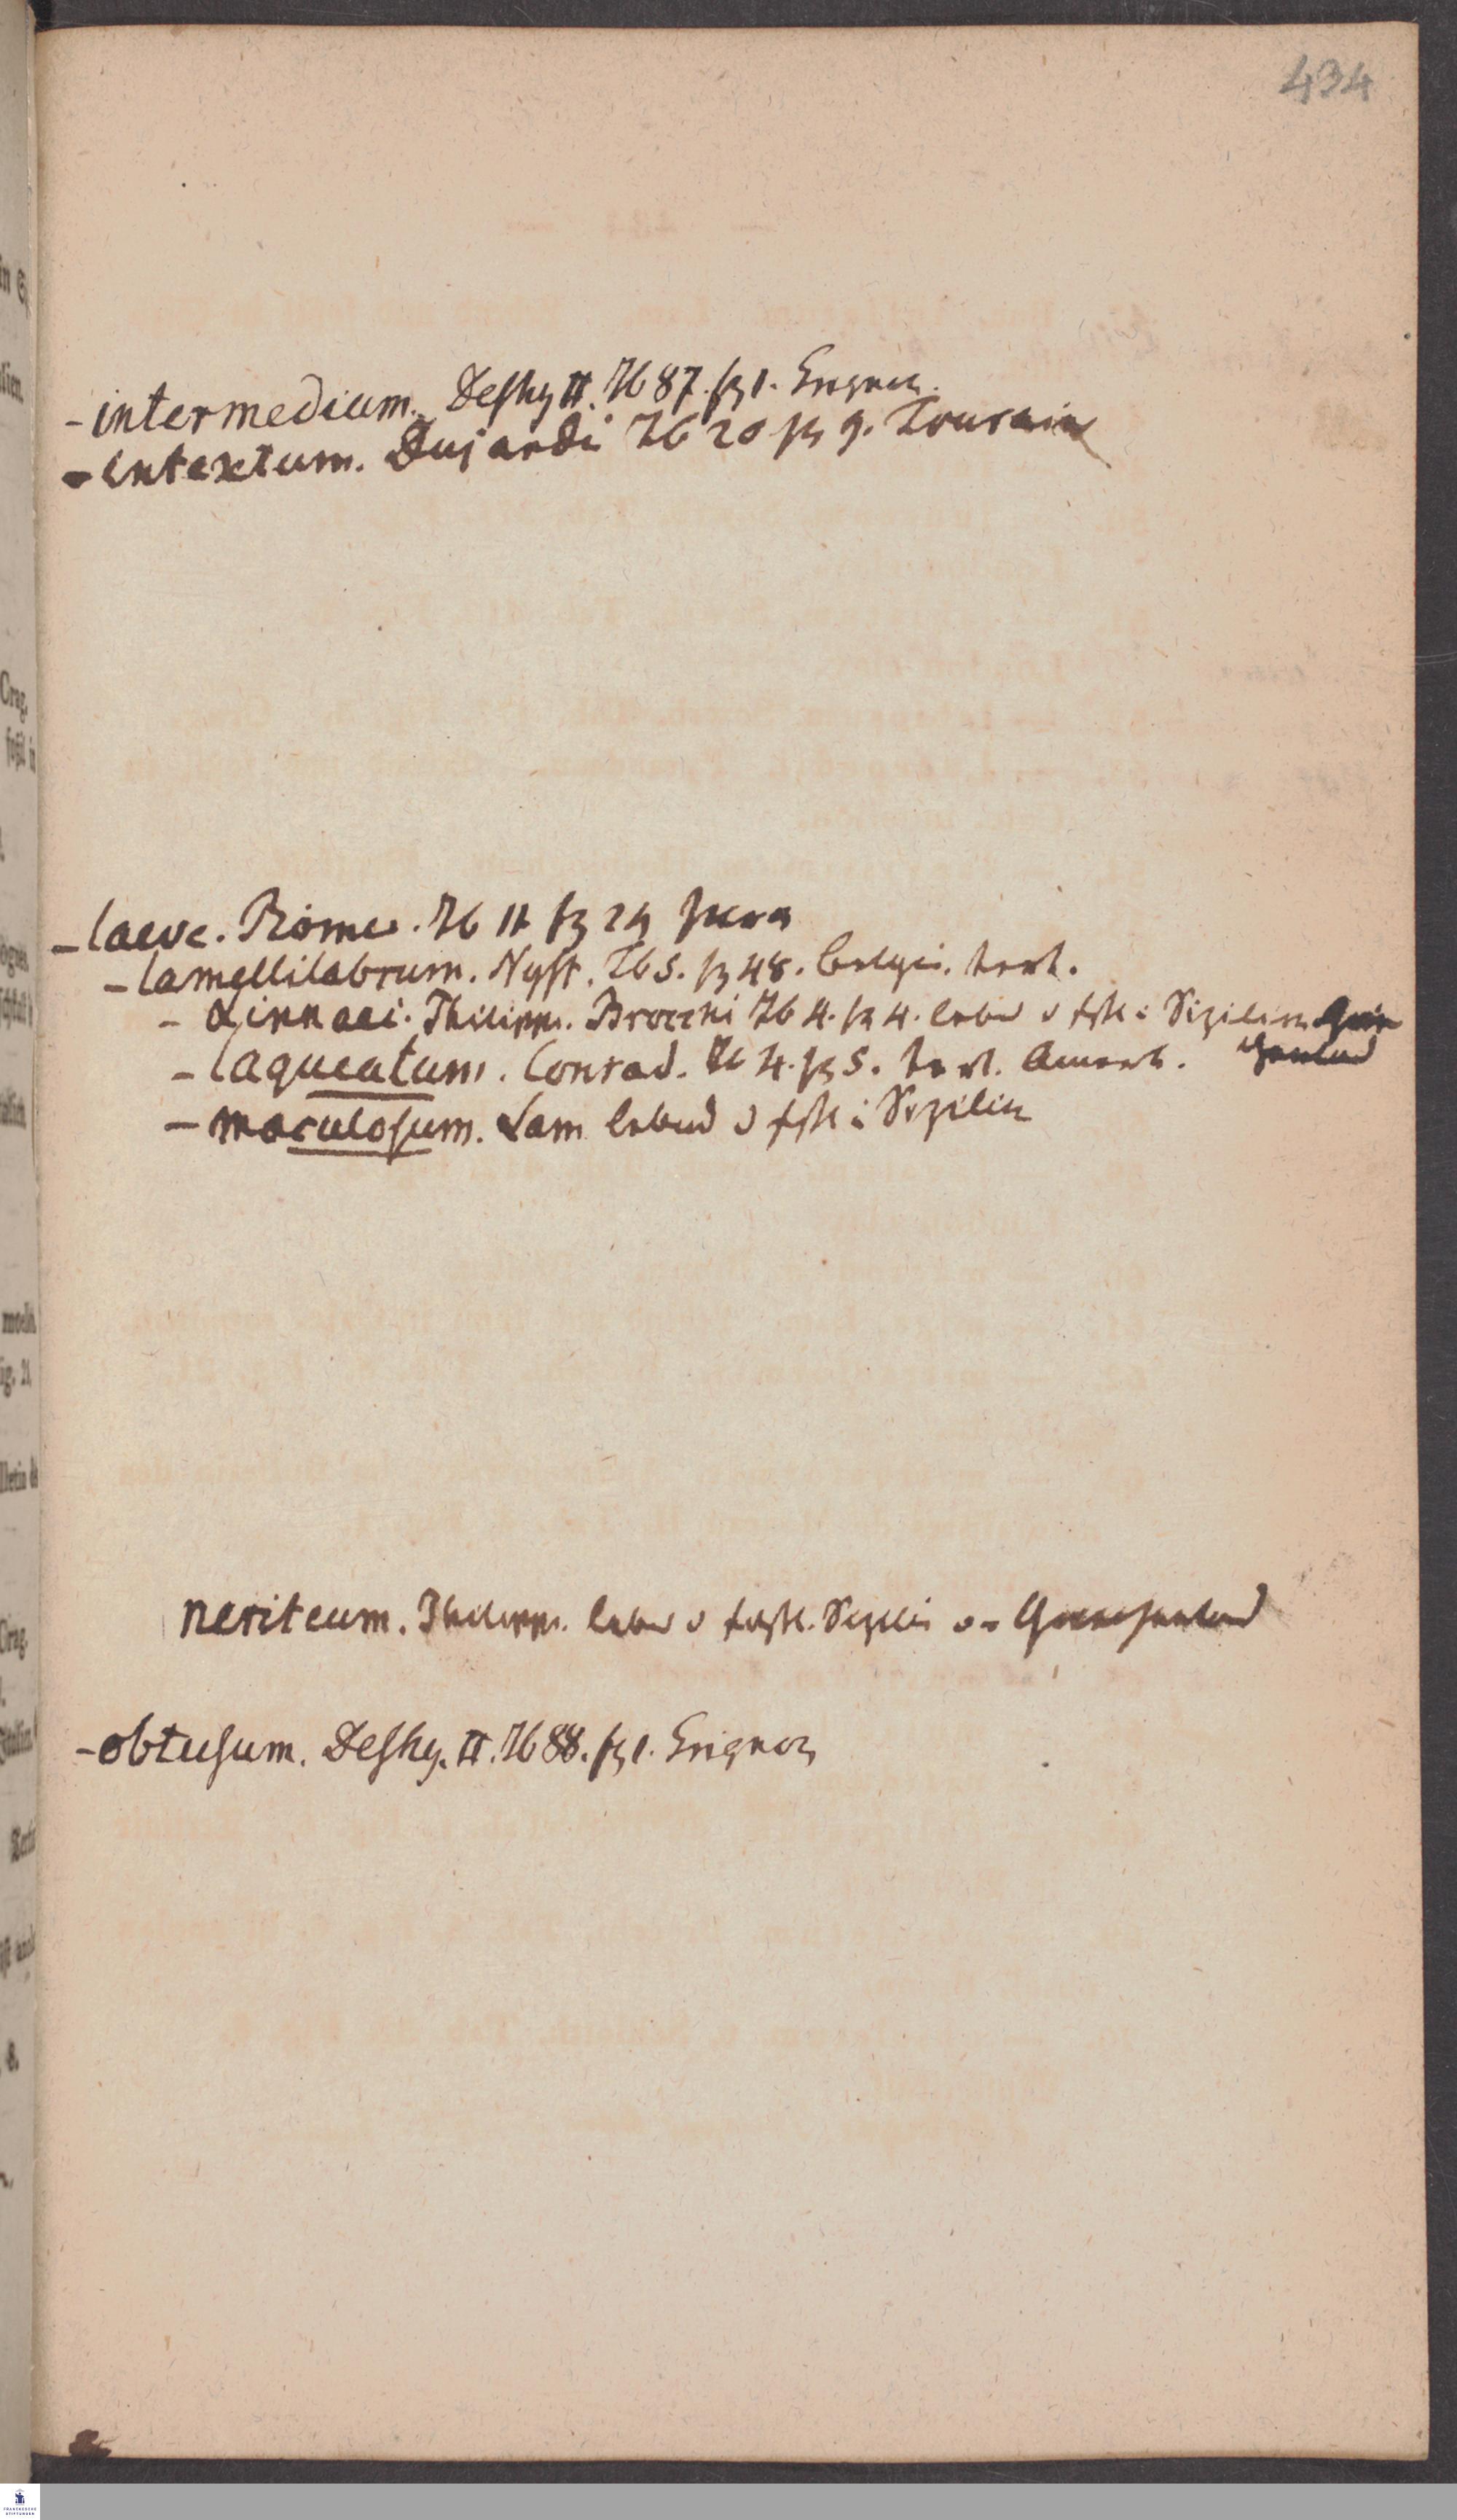 434
- intermedium. Deshy II. Tb 87. fg 1. Grignon.
- intextum. Dujardi Tb 20 fg 9. Tourain
- laeve. Römer. Tb 11 fg 24 Jura
- lamellilabrum. Nyst. Tb 5. fg 48. Belgien. tert.
- Linnaei. Philippi. Brocchi Tb 4. fg 4. lebend u foss i Sizilien Griechenland
- laqueatum. Conrad. Tb 4. fg 5. tert. Amerik.
- maculosum. Lam lebend u foss i Sizilien
neriteum. Philippi. lebend u foss. Sizilien u Griechenland
- obtusum. Deshy. II. Tb 88. fg 1. Grignon